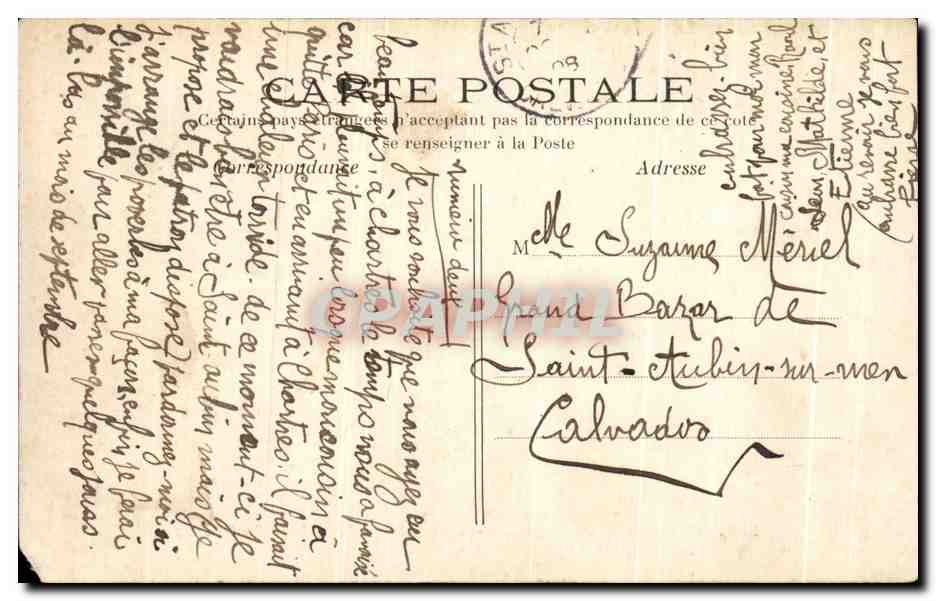 CARTE POSTALE
Certains pays étrangers n'acceptant pas la correspondance de ce côté
se renseigner à la Poste
Correspondance
Adresse
numero deux
Je vous souhaite que vous ayez eu
beau temps, à Chartres le temps nous a favorisé
car la un peu lorsque mon cousin a
quitté Paris et en arrivant à Chartres il faisait
une chaleur torride. de ce moment-ci je
voudrais bien être à Saint aubin mais Je
propose et le patron dispose, pardonnez-moi si
j'arrange les proverbes à ma façon, enfin je ferai
l'impossible pour aller passer quelques jours
là-bas au mois de septembre
Mlle Suzanne Mériel
Grand Bazar de
Saint-Aubin-sur-mer
Calvados
embrassez-bien
fort pour moi mon
cousin ma cousine
Mathilde, et
Etienne
au revoir je vous
embrasse bien fort
Pierre
CPAPHIL